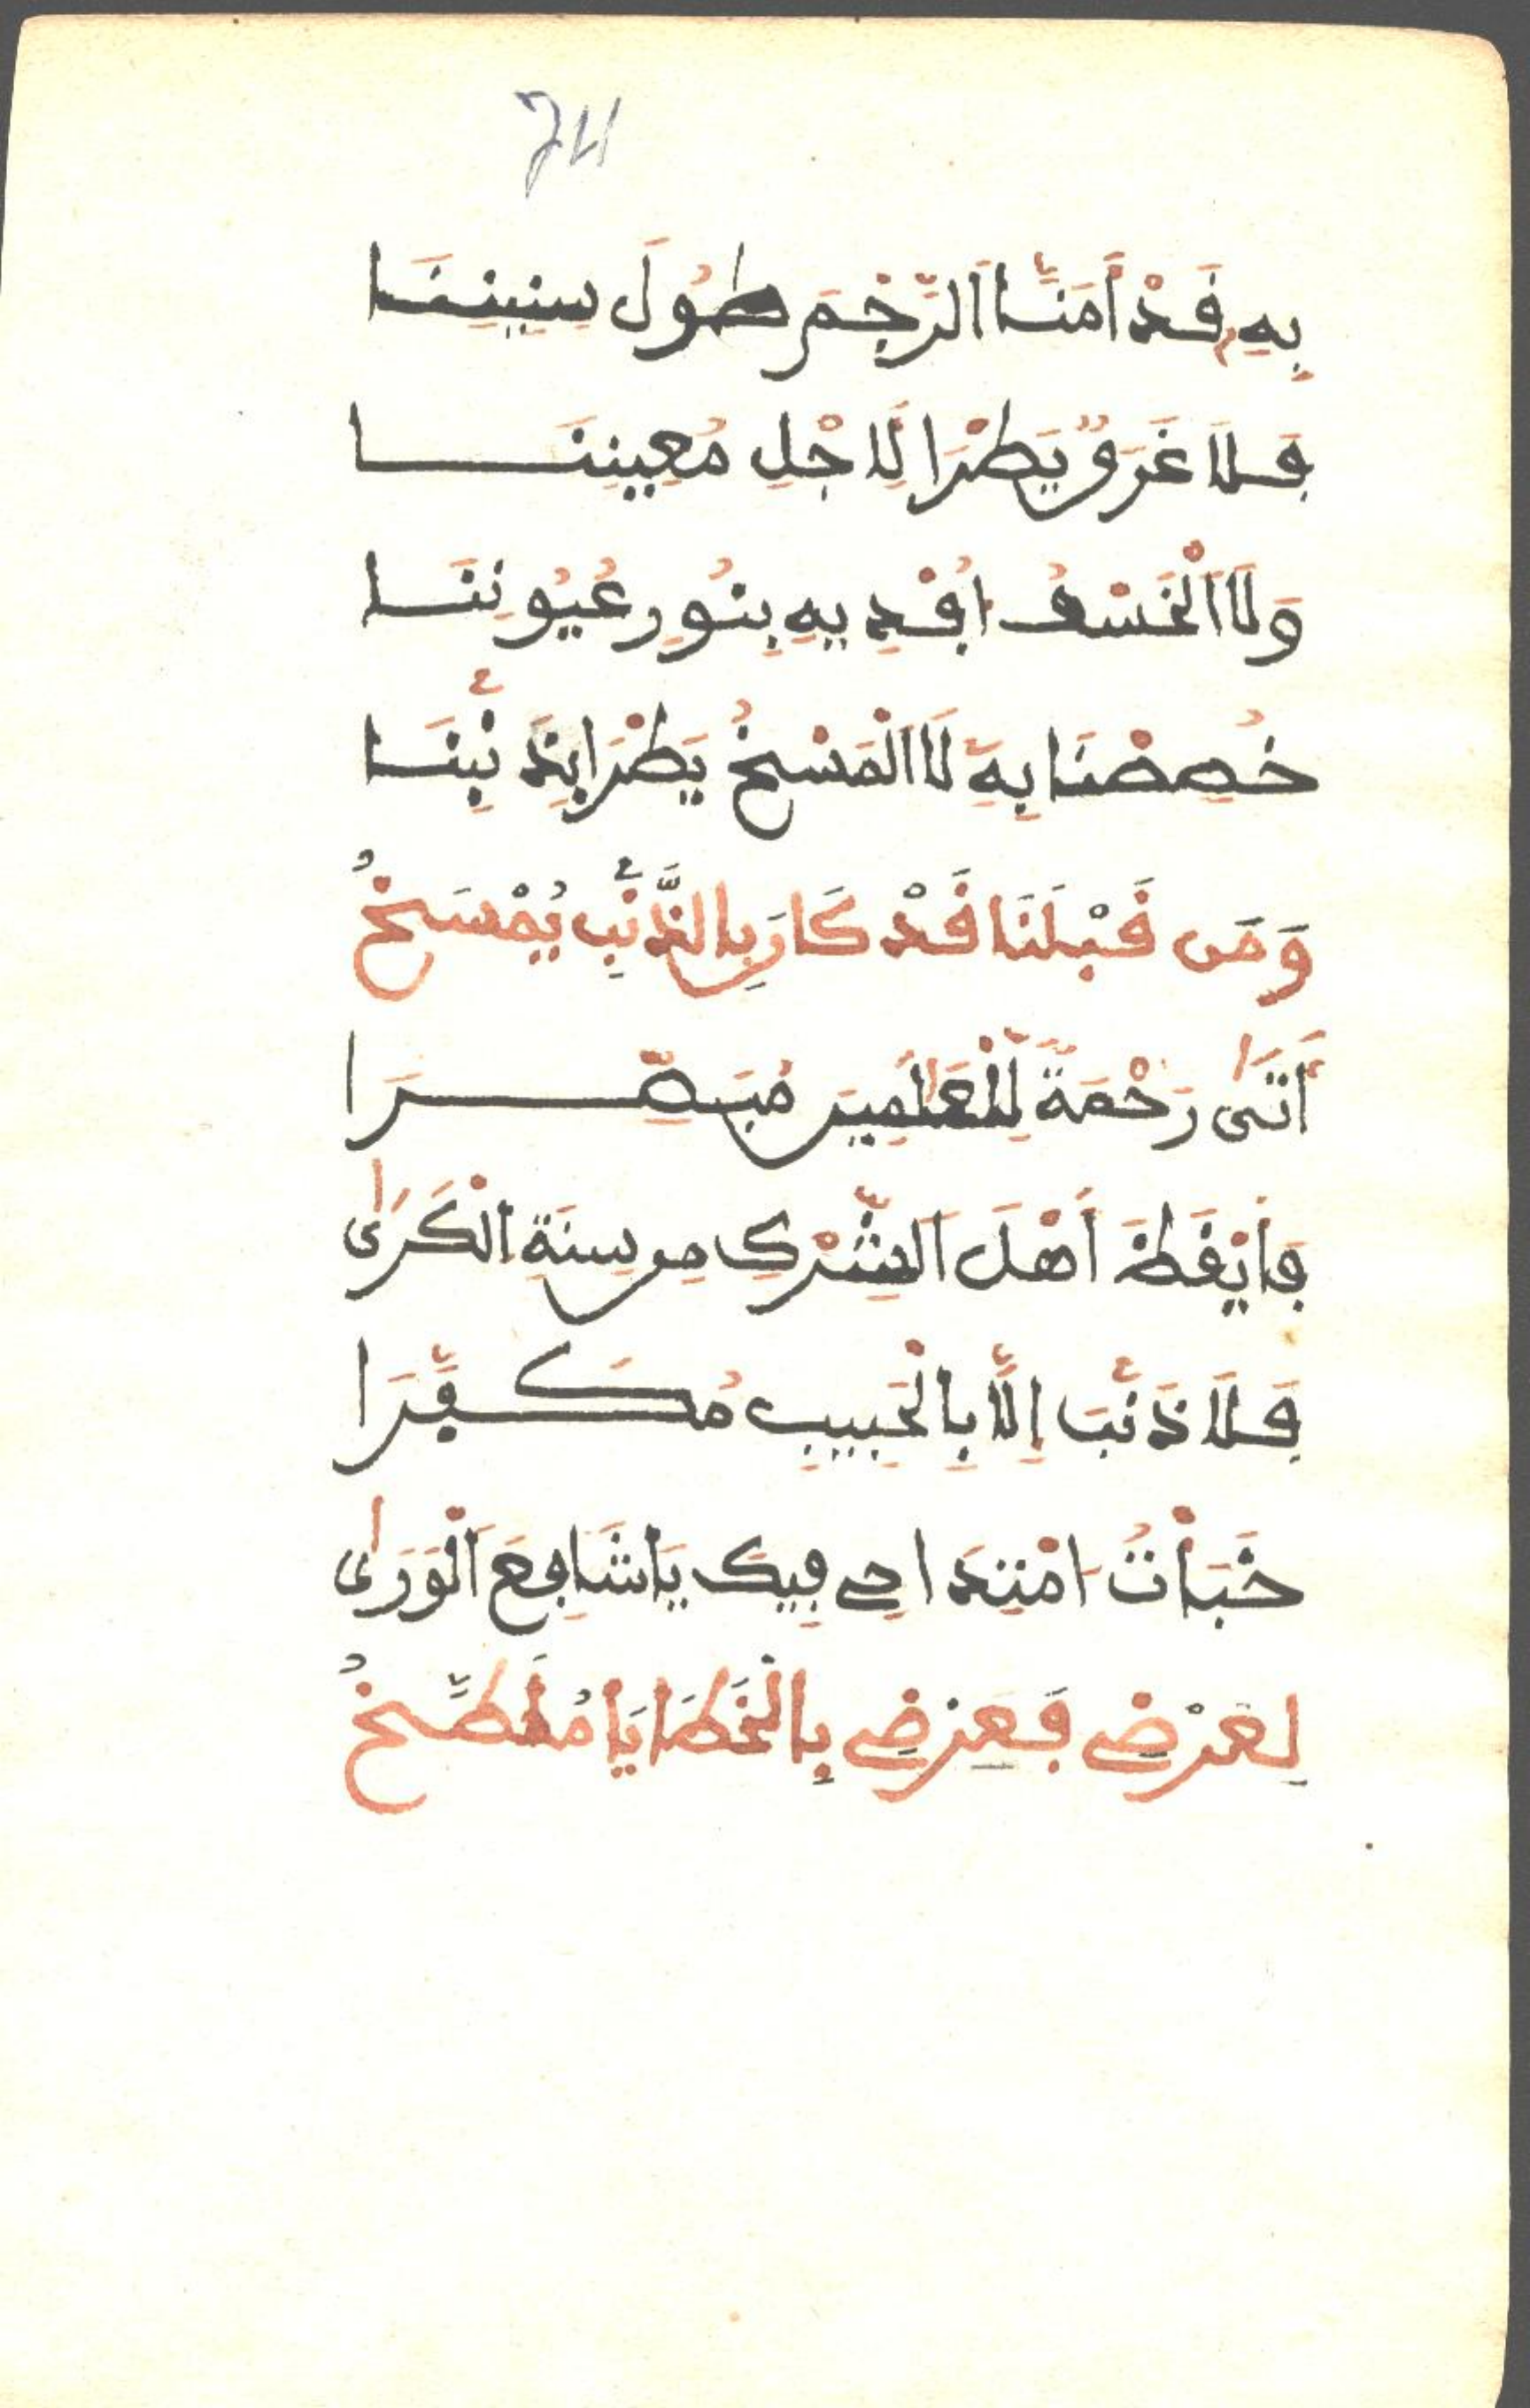 بِهِ قَدْ أَمَنَّا الرَّجْمَ طُولَ سِنِينِنَا
فَلَا غَرَقٌ يَطْرَا لِأَجْلِ مُعِينِنَا
وَلَا الْخَسْفُ أُفْدِيهِ بِنُورِ عُيُونِنَا
خُصِصْنَا بِهِ لَا الْمَسْخُ يَطْرَا بِذَنْبِنَا
وَمَن قَبْلَنَا قَدْ كَانَ بِالذَّنْبِ يُمْسَخُ
أَتَى رَحْمَةً لِّلْعَالَمِينَ مُبَصِّرَا
فَأَيْقَظَ أَهْلَ الشِّرْكِ مِن سِنَةِ الْكَرَى
فَلَا ذَنْبَ إِلَّا بِالْحَبِيبِ مُكَفَّرَا
خَبَأْتُ امْتِدَاحِي فِيكَ يَا شَافِعَ الْوَرَى
لِعَرْضِي فَعِرْضِي بِالْخَطَايَا مُلَطَّخُ